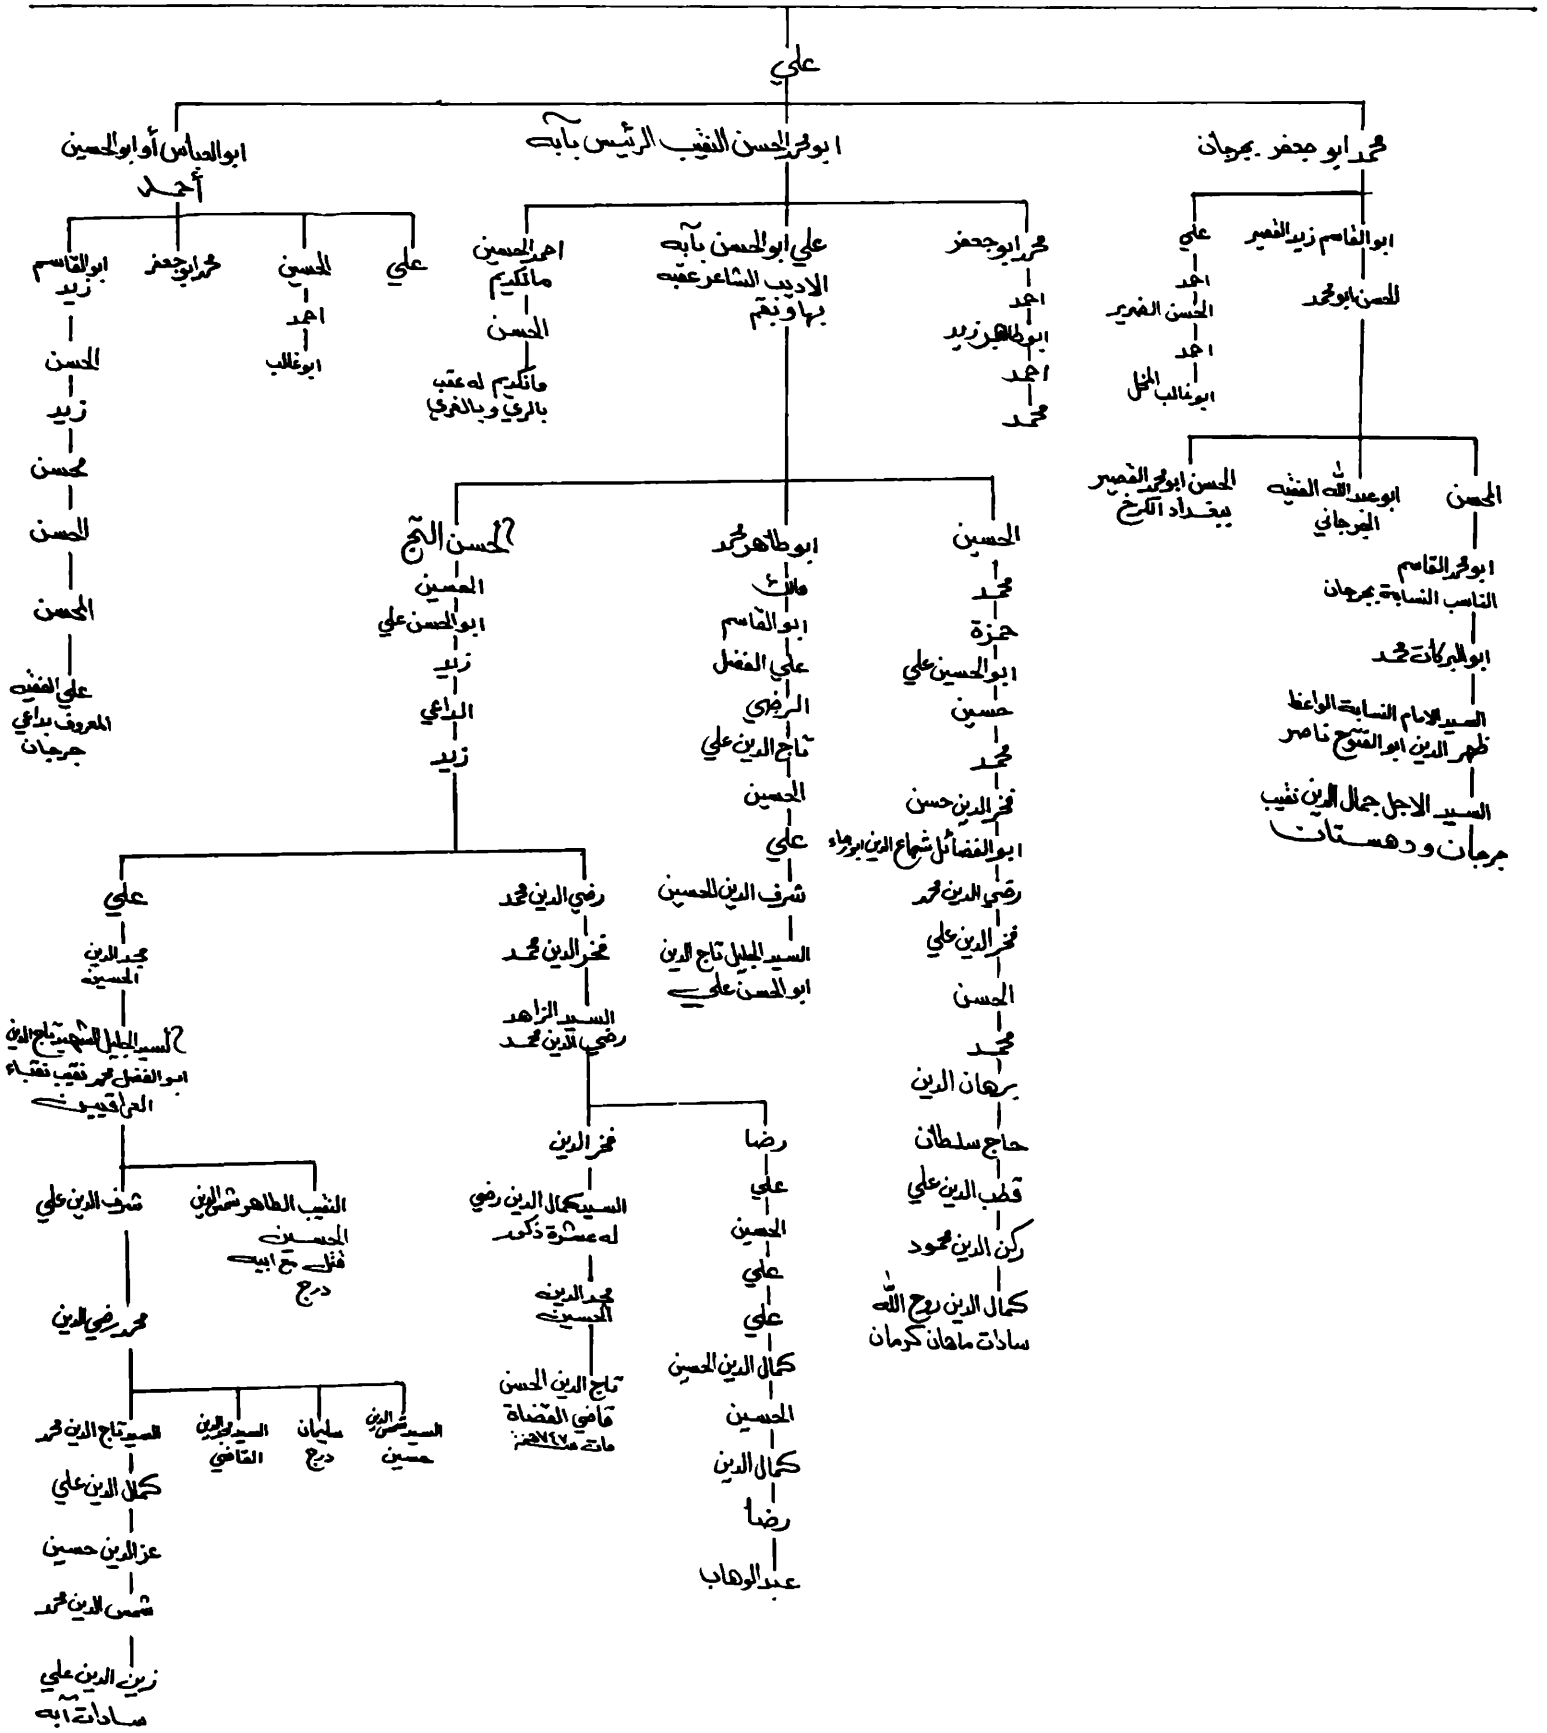 علي
محمد ابو جعفر بجرجان
ابو القاسم زيد القصير
الحسن ابو محمد
المحسن
ابو محمد القاسم
النائب النسابة بجرجان
ابو البركات محمد
السيد الامام النسابة الواعظ
ظهر الدين ابو الفتوح ناصر
السيد الاجل جمال الدين نقيب
جرجان ودهستان
ابو عبد الله الفقيه
الجرجاني
الحسن ابو محمد القصير
ببغداد الكرخ
علي
احمد
الحسن الضرير
احمد
ابو غالب
ابو محمد الحسن النقيب الرئيس بآبه
محمد ابو جعفر
احمد
ابو طاهر زيد
احمد
محمد
علي ابو الحسن بآبه
الاديب الشاعر عقبه
بها وبقم
الحسين
محمد
حمزة
ابو الحسين علي
حسين
محمد
فخر الدين حسن
ابو الفضائل شجاع الدين ابو رضاء
رضي الدين محمد
فخر الدين علي
الحسن
محمد
برهان الدين
حاج سلطان
قطب الدين علي
ركن الدين محمود
كمال الدين روح الله
سادات ماهان كرمان
ابو طاهر محمد
ابو القاسم
علي الفضل
الرضي
تاج الدين علي
الحسين
علي
شرف الدين الحسين
السيد الجليل تاج الدين
ابو الحسن علي
الحسن التج
الحسين
ابو الحسن علي
زيد
الداعي
زيد
رضي الدين محمد
فخر الدين محمد
السيد الزاهد
رضي الدين محمد
رضا
علي
الحسين
علي
علي
كمال الدين الحسين
الحسين
كمال الدين
رضا
عبد الوهاب
فخر الدين
السيد كمال الدين رضي
له عشرة ذكور
مجد الدين
الحسين
تاج الدين الحسن
قاضي القضاة
مات سنة ٧٤٧
علي
مجد الدين
الحسين
السيد الجليل الشهيد تاج الدين
ابو الفضل محمد نقيب نقباء
العراقيين
النقيب الطاهر شمس الدين
الحسين
قتل مع ابيه
درج
شرف الدين علي
محمد رضي الدين
السيد شمس الدين
حسين
سليمان
درج
السيد
القاضي
السيد تاج الدين محمد
كمال الدين علي
عز الدين حسين
شمس الدين محمد
زين الدين علي
سادات آبه
احمد الحسين
مانكديم
الحسن
مانكديم له عقب
بالري وبالغري
ابو العباس أو ابو الحسين
أحمد
علي
الحسين
احمد
ابو غالب
محمد ابو جعفر
ابو القاسم
زيد
الحسن
زيد
محسن
الحسن
المحسن
علي الفقيه
المعروف بداعي
جرجان